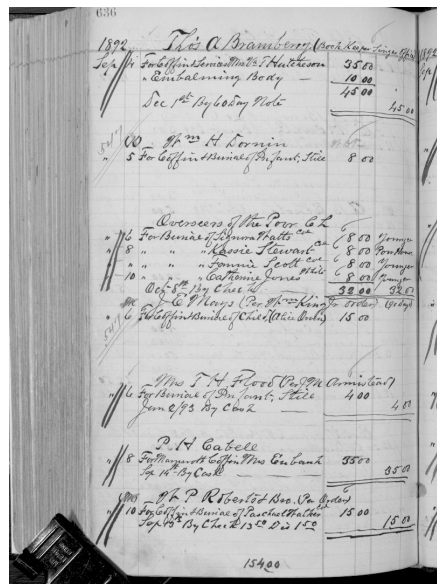 636
1892 Thos A Bramberry (Book Keeper Singer Office)
Sep 4 For Coffin & Services Mrs Wm T Hutcheson 35 00
" Embalming Body — 10 00
45 00
Dec 1st By 60 day Note 45 00
Wm H Dornin
" 5 For Coffin & Burial of Infant, Still 8 00
Overseers of the Poor C L
" 6 For Burial of Watts Col 8 00 Younger
" 8 " " " Kassie Stewart Col 8 00 Poor House
" " " " Fannie Scott Col 8 00 Younger
" 10 " " " Catherine Jones White 8 00 Younger
Oct 8th By Check 32 00 32 00
J C Mays (Per Wm King Jr order)
" 6 For Coffin & Burial of Child 15 00
Mrs T H Flood (Per Armistead)
" 6 For Burial of Infant, Still 4 00
Jan 2/93 By Cash 4 00
P H Cabell
" 8 For Coffin Mrs Eubank 35 00
Sep 14th By Cash 35 00
W P Roberts & Bro. (Per Order)
" 10 For Coffin & Burial of Paschael Col 15 00
Sep By Check 13 50 Dis 1 50 15 00
154 00